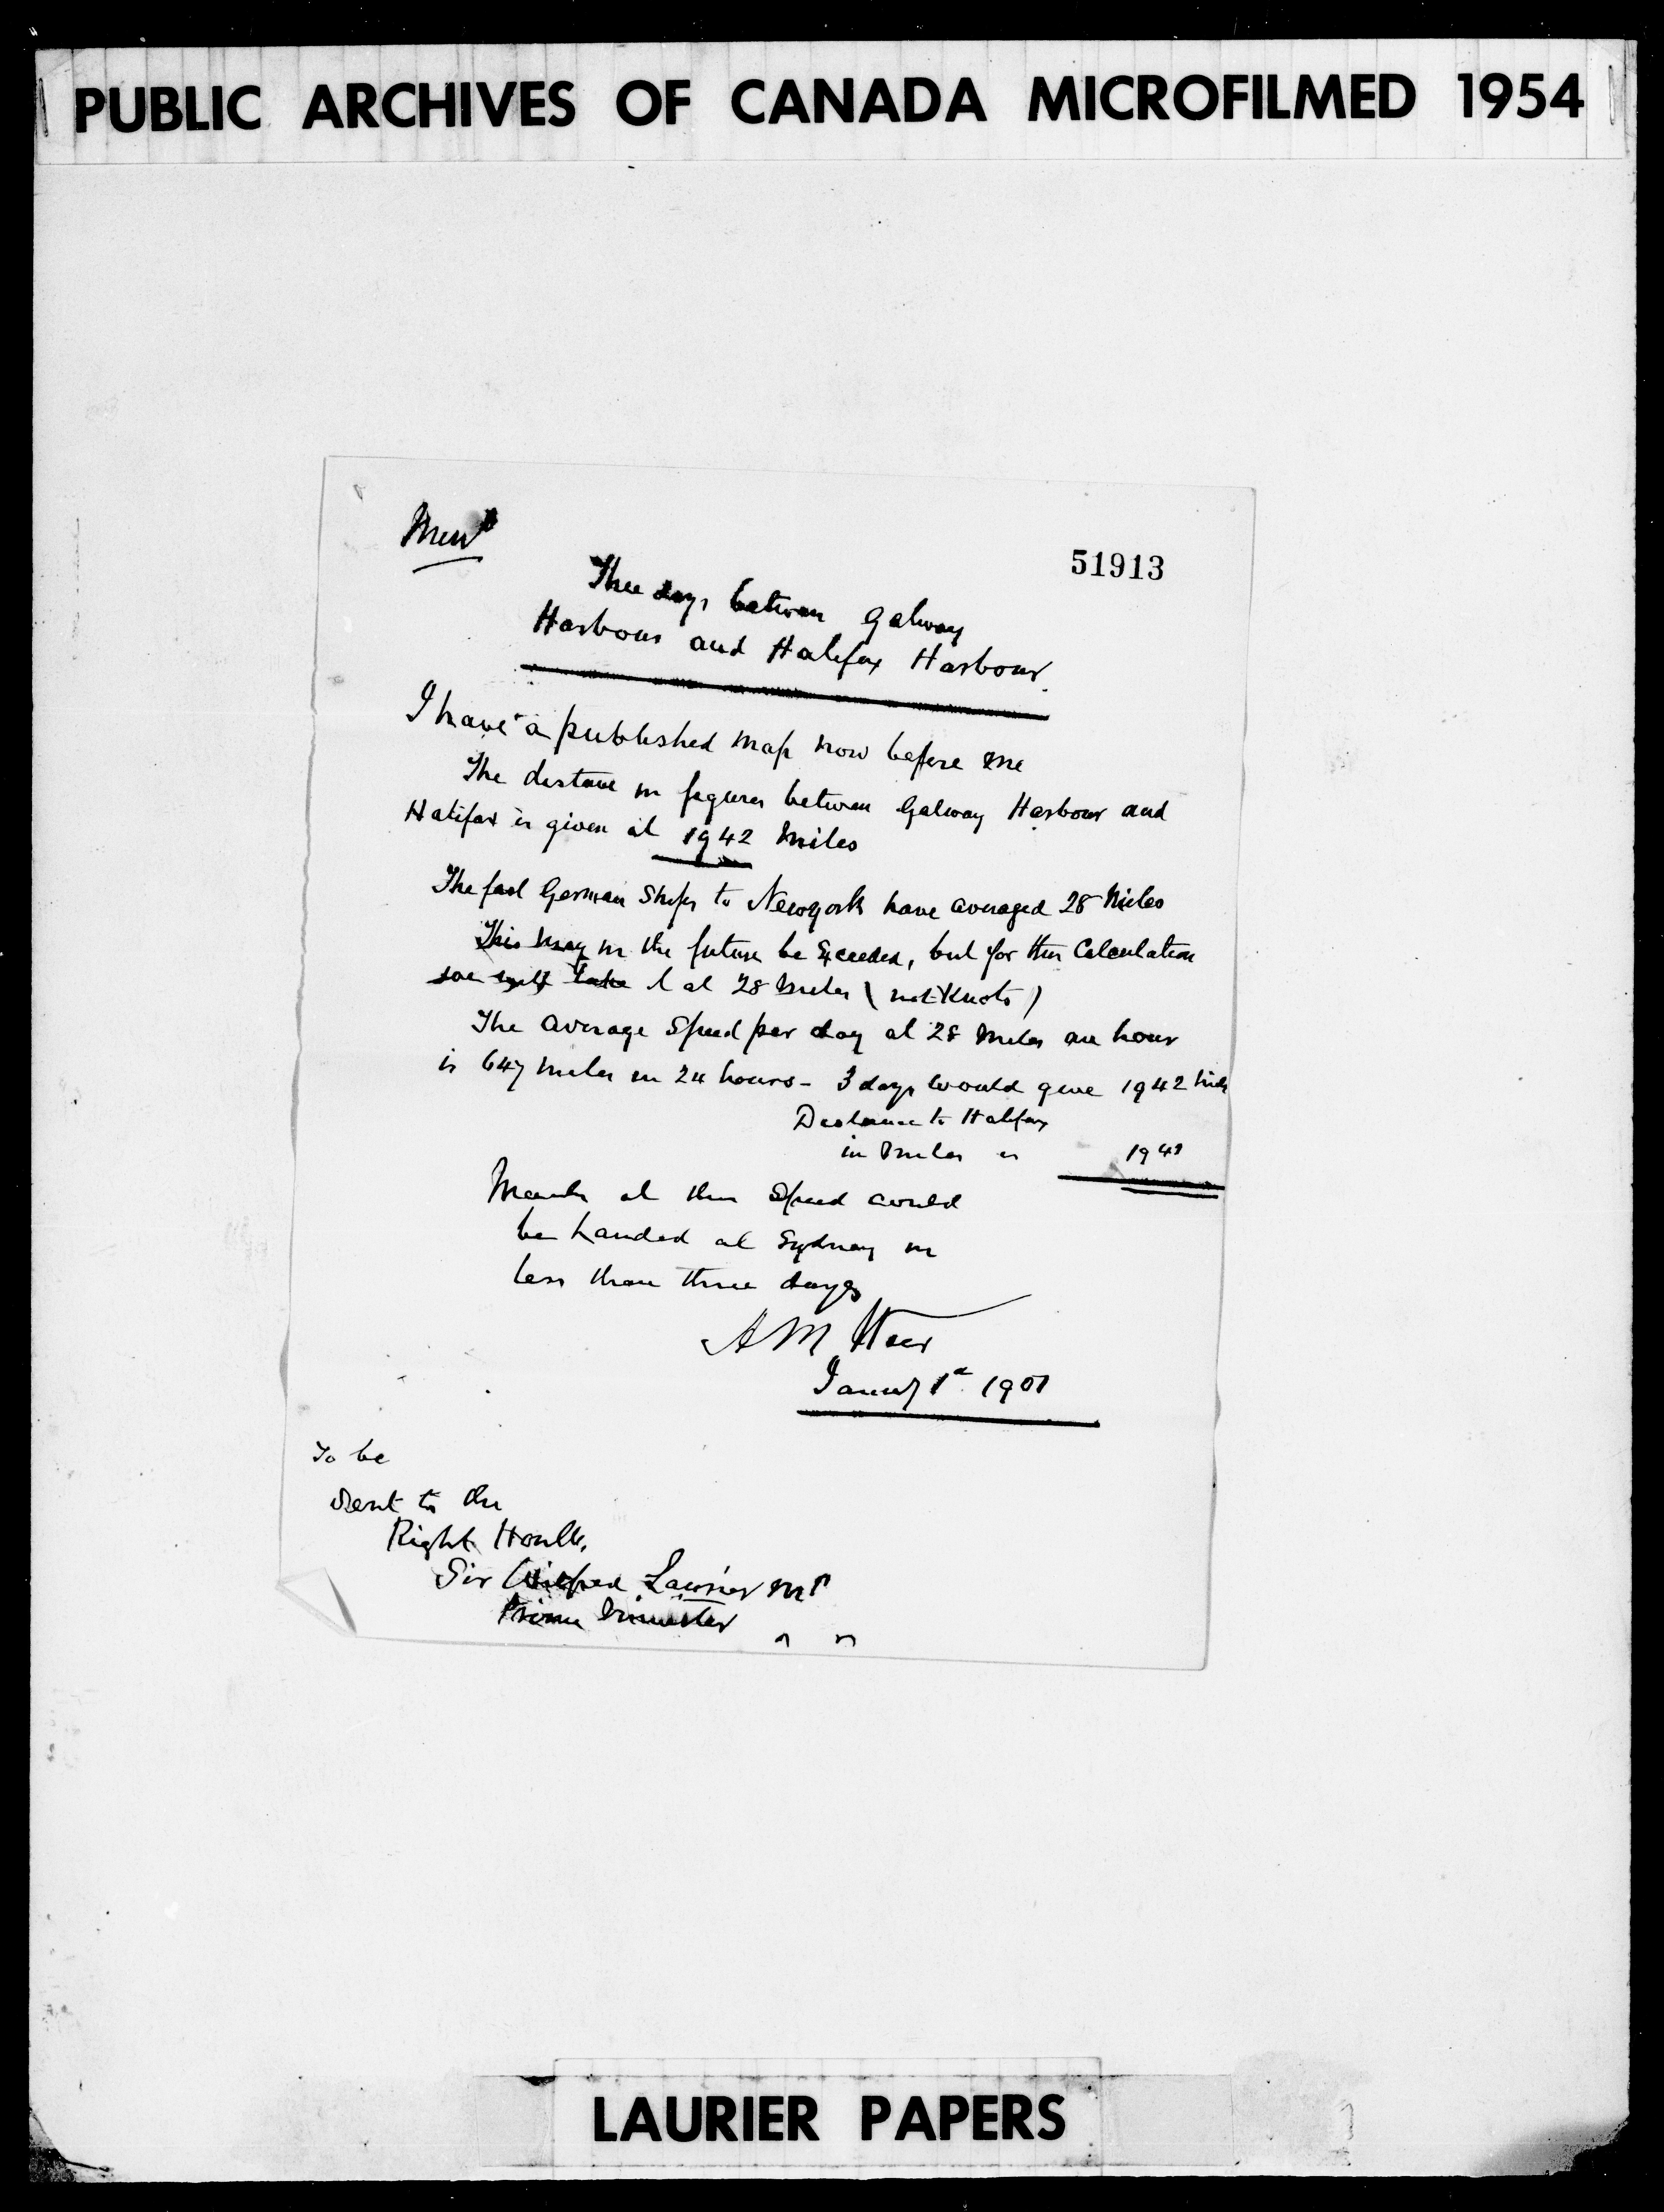 PUBLIC ARCHIVES OF CANADA MICROFILMED 1954
51913
Three days between Galway
Harbour and Halifax Harbour.
I have a published map now before me
The distance in figures between Galway Harbour and
Halifax is given at 1942 Miles
The fast German Ships to Newyork have averaged 28 Miles
This may in the future be Exceeded, but for this Calculation
we will take it at 28 Miles (not Knots)
The average Speed per day at 28 Miles an hour
is 647 miles in 24 hours - 3 days would give 1942 Miles
Distance to Halifax
in Miles is 1942
at this Speed could
be handed at Sydney in
less than three days
A M
January 1st 1901
To be
sent to the
Right Honble.
Sir Wilfred Laurier MP
Prime Minister
LAURIER PAPERS